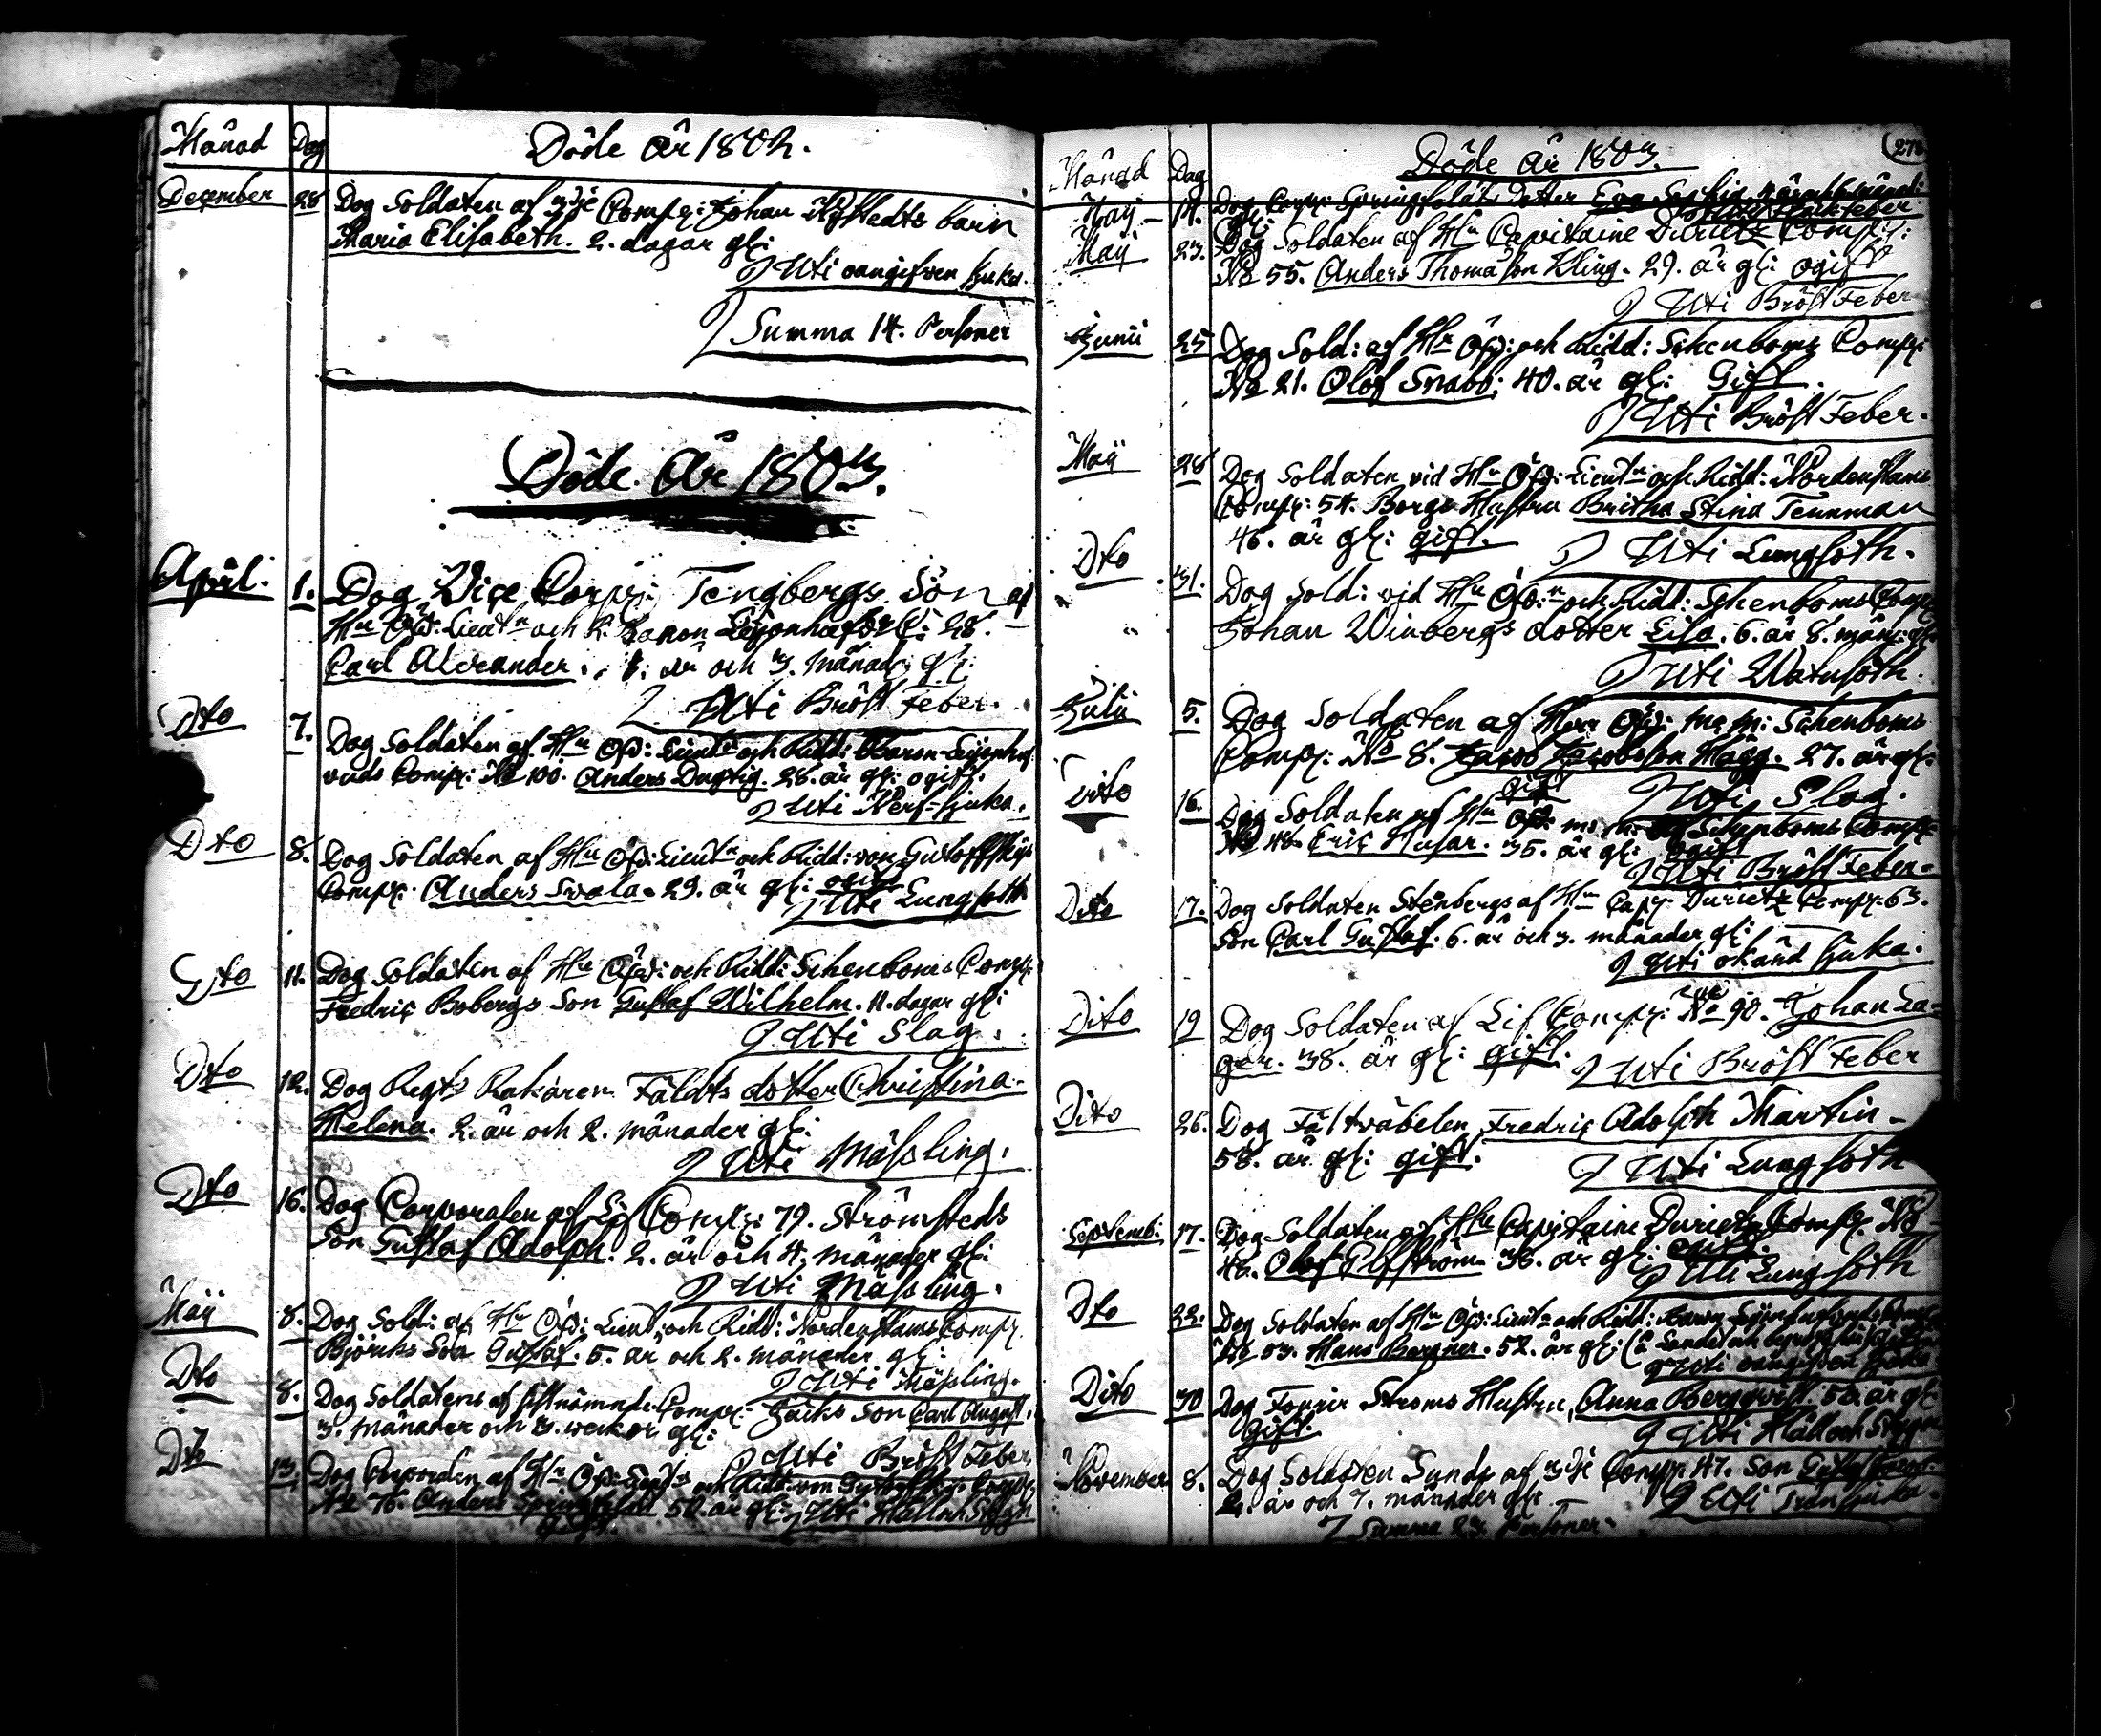 Månad Dag Döde År 1802.
December 28 Dog Soldaten af 3dje Comp: Johan Hofstedts barn
Maria Elisabeth. 2. dagar gl:
Uti oangifven sjukd.
Summa 14. Personer
Döde År 1803.
April. 1. Dog Vice Corp: Tengbergs Son af
Hr Öfv: Lieutn och R. Baron Leijonhufvds C: 28.
Carl Alexander. år och 3. månad: gl:
Uti Bröst Feber.
Dto 7. Dog Soldaten af Hr Öfv: Lieutn och Ridd: Baron Leijonhuf-
vuds Comp: No 100. Anders Dugtig. 28. år gl: ogift.
Uti Nerf-sjuka.
Dto 8. Dog Soldaten af Hr Öfv: Lieutn och Ridd: von
Comp: Anders Svala. 29. år gl: ogift
Uti Lungsoth
Dto 11. Dog Soldaten af Hr Öfv: och Ridd: Schenboms Comp:
Fredric Bobergs Son Gustaf Wilhelm. 11. dagar gl:
Uti Slag.
Dto 12. Dog Regts Rakaren Fäldts dotter Christina-
Helena. 2. år och 2. månader gl:
Uti Mässling.
Dto 16. Dog Corporalen af Lif Comp: 79. Strömsteds
Son Gustaf Adolph. 2. år och 4. månader gl:
Uti Mässling.
Maij 8. Dog Sold: af Hr Öfv: Lieut: och Ridd: Nordenstams Comp:
Björks Son Gustaf. 5. år och 2. månader gl:
Uti Mässling.
Dto 8. Dog Soldatens af sistnämnde Comp: Falks Son Carl August.
3. månader och 3. veckor gl:
Uti Bröst Feber
Dto 13. Dog Corporalen af Hr Öfv: Lieutn och Ridd: von Comp:
No 76. Anders 50. år gl: Uti Håll och Stygn
gift.
Månad Dag Döde År 1803.
Maij 14. Dog Corp: dotter Eva
gl:
Maij 23. Dog Soldaten af Hr Capitaine Durietz Comp:
No 55. Anders Thomasson Kling. 29. år gl: ogift
Uti Bröst Feber
Junii 25 Dog Sold: af Hr Öfv: och Ridd: Schenboms Comp:
No 21. Olof Snabb: 40. år gl: Gift.
Uti Bröst Feber.
Maij 28 Dog Soldaten vid Hr Öfv: Lieutn och Ridd: Nordenstams
Comp: 54. Bergs Hustru Britha Stina Tennman
46. år gl: gift.
Uti Lungsoth.
Dto 31. Dog Sold: vid Hr Öfv: och Ridd: Schenboms Comp:
Johan Winbergs dotter Lisa. 6. år 8. mån: gl:
Uti Watusoth.
Julii 5. Dog Soldaten af Herr Öfv: m. m: Schenboms
Comp: No 8. Jacob Jacobsson Hagg. 27. år gl:
gift Uti Slag.
Dito 16. Dog Soldaten af Hr Öfv: m. m: Schenboms Comp:
No 48. Eric Husar. 35. år gl: ogift
Uti Bröst Feber.
Dito 17. Dog Soldaten Stenbergs af Hr Cap: Durietz Comp: 63.
Son Carl Gustaf: 6. år och 3. månader gl:
Uti okänd sjuka.
Dito 19 Dog Soldaten af Lif Comp: No 90. Johan La-
ger. 38. år gl: gift.
Uti Bröst Feber
Dito 26. Dog Fältväbelen Fredric Adolph Martin-
58. år gl: gift.
Uti Lungsoth
Septemb: 17. Dog Soldaten af Hr Capitaine Durietz Comp: No
48. Olof 36. år gl:
Uti Lungsoth
Dto 22. Dog Soldaten af Hr Öfv: Lieutn och Ridd: Baron
No 03. Hans 52. år gl:
Uti oangifven sjuka
Dito 30 Dog Fourir Ströms Hustru, Anna Bergqvist. 50. år gl:
Gift. Uti Håll och Styng
November 8. Dog Soldaten Sunds af 3dje Comp: 47. Son
2. år och 7. månader gl:
Uti
Summa 23. Personer.